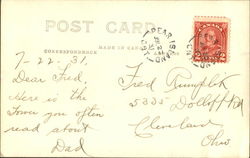 POST CARD
CORRESPONDENCE
MADE IN CANADA
PEAR ISL
ONT
7-22.31.
Dear Fred,
Here is the
Town you often
read about
Dad
Fred
5335 Dolloff Rd
Cleveland
Ohio